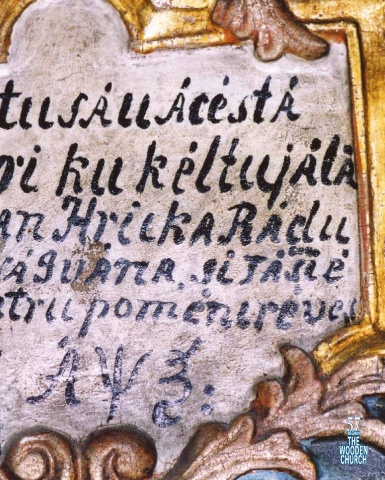 tusáu ácéstá
ori ku kéltujálá
an Hricka Rádu
vá Iváná, si táŝié
ntru poménire ves
ÁѰЗ:
THE
WOODEN
CHURCH